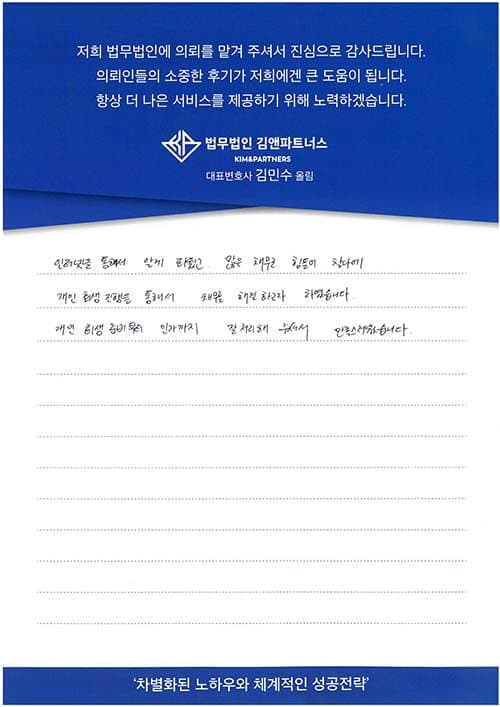 저희 법무법인에 의뢰를 맡겨 주셔서 진심으로 감사드립니다.
의뢰인들의 소중한 후기가 저희에겐 큰 도움이 됩니다.
항상 더 나은 서비스를 제공하기 위해 노력하겠습니다.
법무법인 김앤파트너스
KIM&PARTNERS
대표변호사 김민수 올림
인터넷을 통해서 알게 되었고. 많은 채무로 힘들어 하던차에
개인 회생 진행을 통해서 채무를 해결 하고자 하였습니다.
개인 회생 준비부터 인가까지 잘 처리해 주셔서 만족스러웠습니다.
'차별화된 노하우와 체계적인 성공전략'